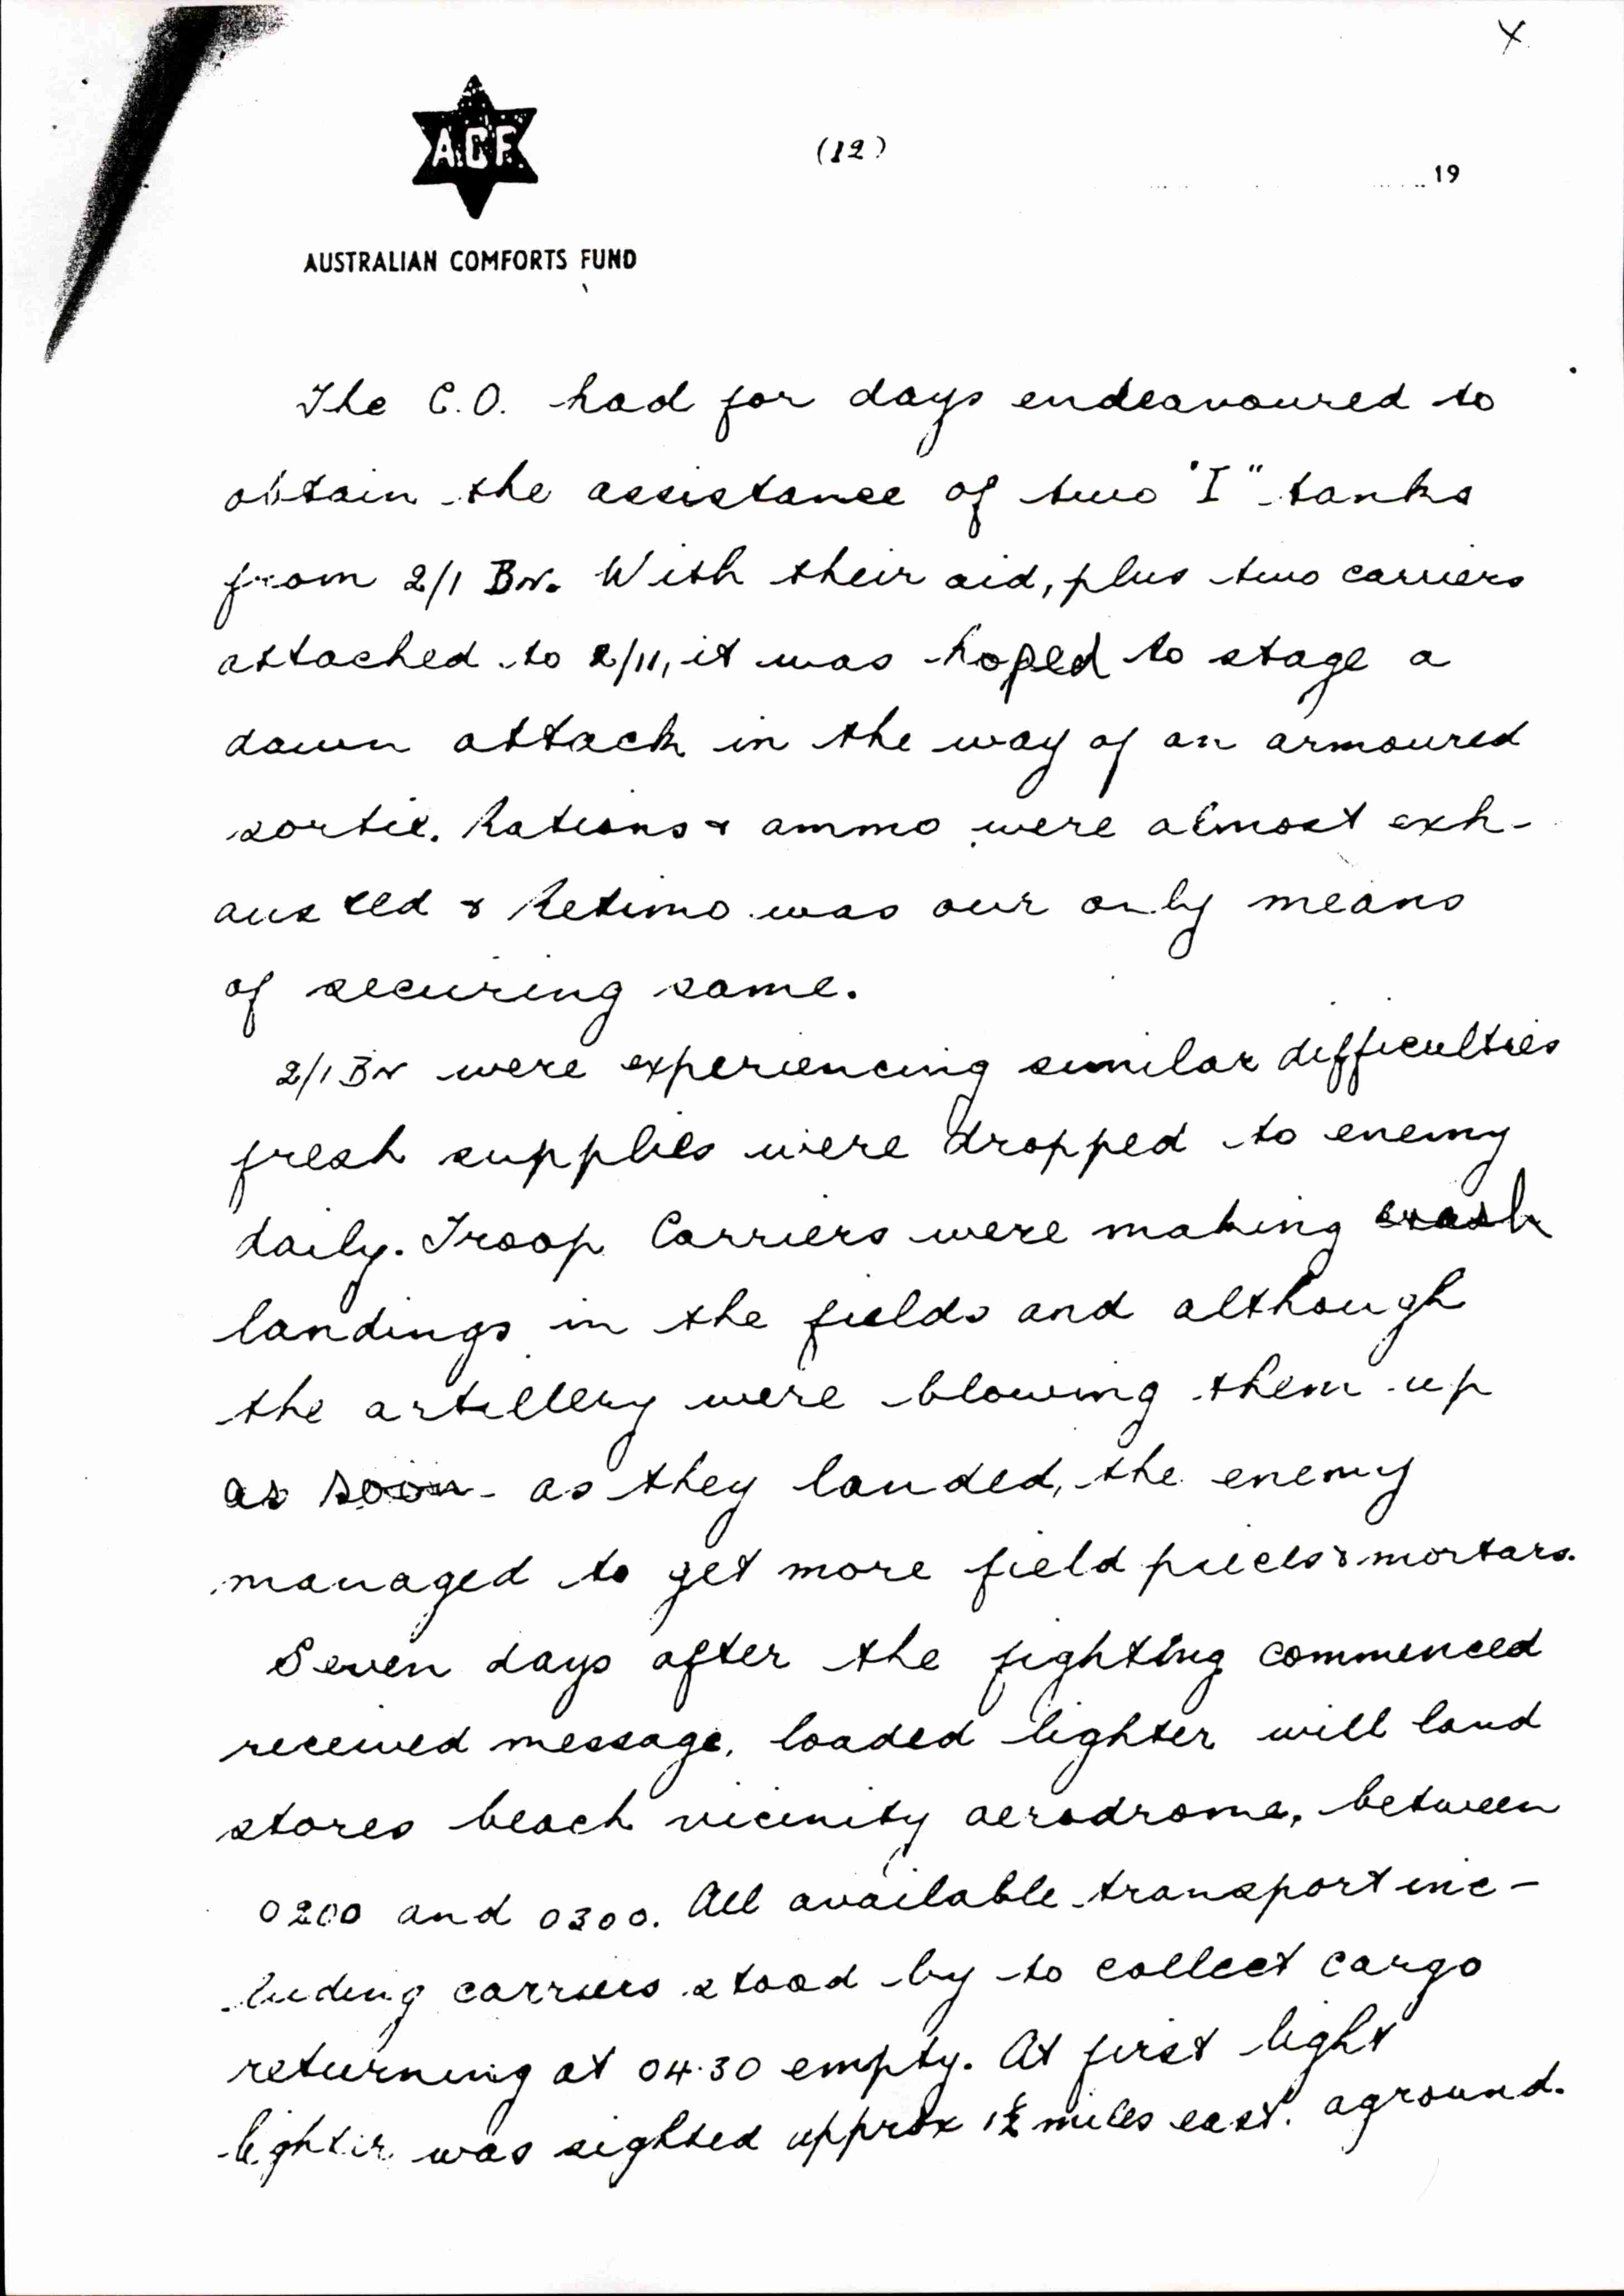 X.
A.C.F.
(12)
19
AUSTRALIAN COMFORTS FUND
The C.O. had for days endeavoured to
obtain the assistance of two "I" tanks
from 2/1 Bn. With their aid, plus two carriers
attached to 2/11, it was hoped to stage a
dawn attack in the way of an armoured
sortie. Rations & ammo were almost exh-
austed & Retimo was our only means
of securing same.
2/1 Bn were experiencing similar difficulties
fresh supplies were dropped to enemy
daily. Troop Carriers were making crash
landings in the fields and although
the artillery were blowing them up
as soon as they landed, the enemy
managed to get more field pieces & mortars.
Seven days after the fighting commenced
received message, loaded lighter will land
stores beach vicinity aerodrome, between
0200 and 0300. All available transport inc-
luding carriers stood by to collect cargo
returning at 04.30 empty. At first light
lighter was sighted approx 1½ miles east. aground.